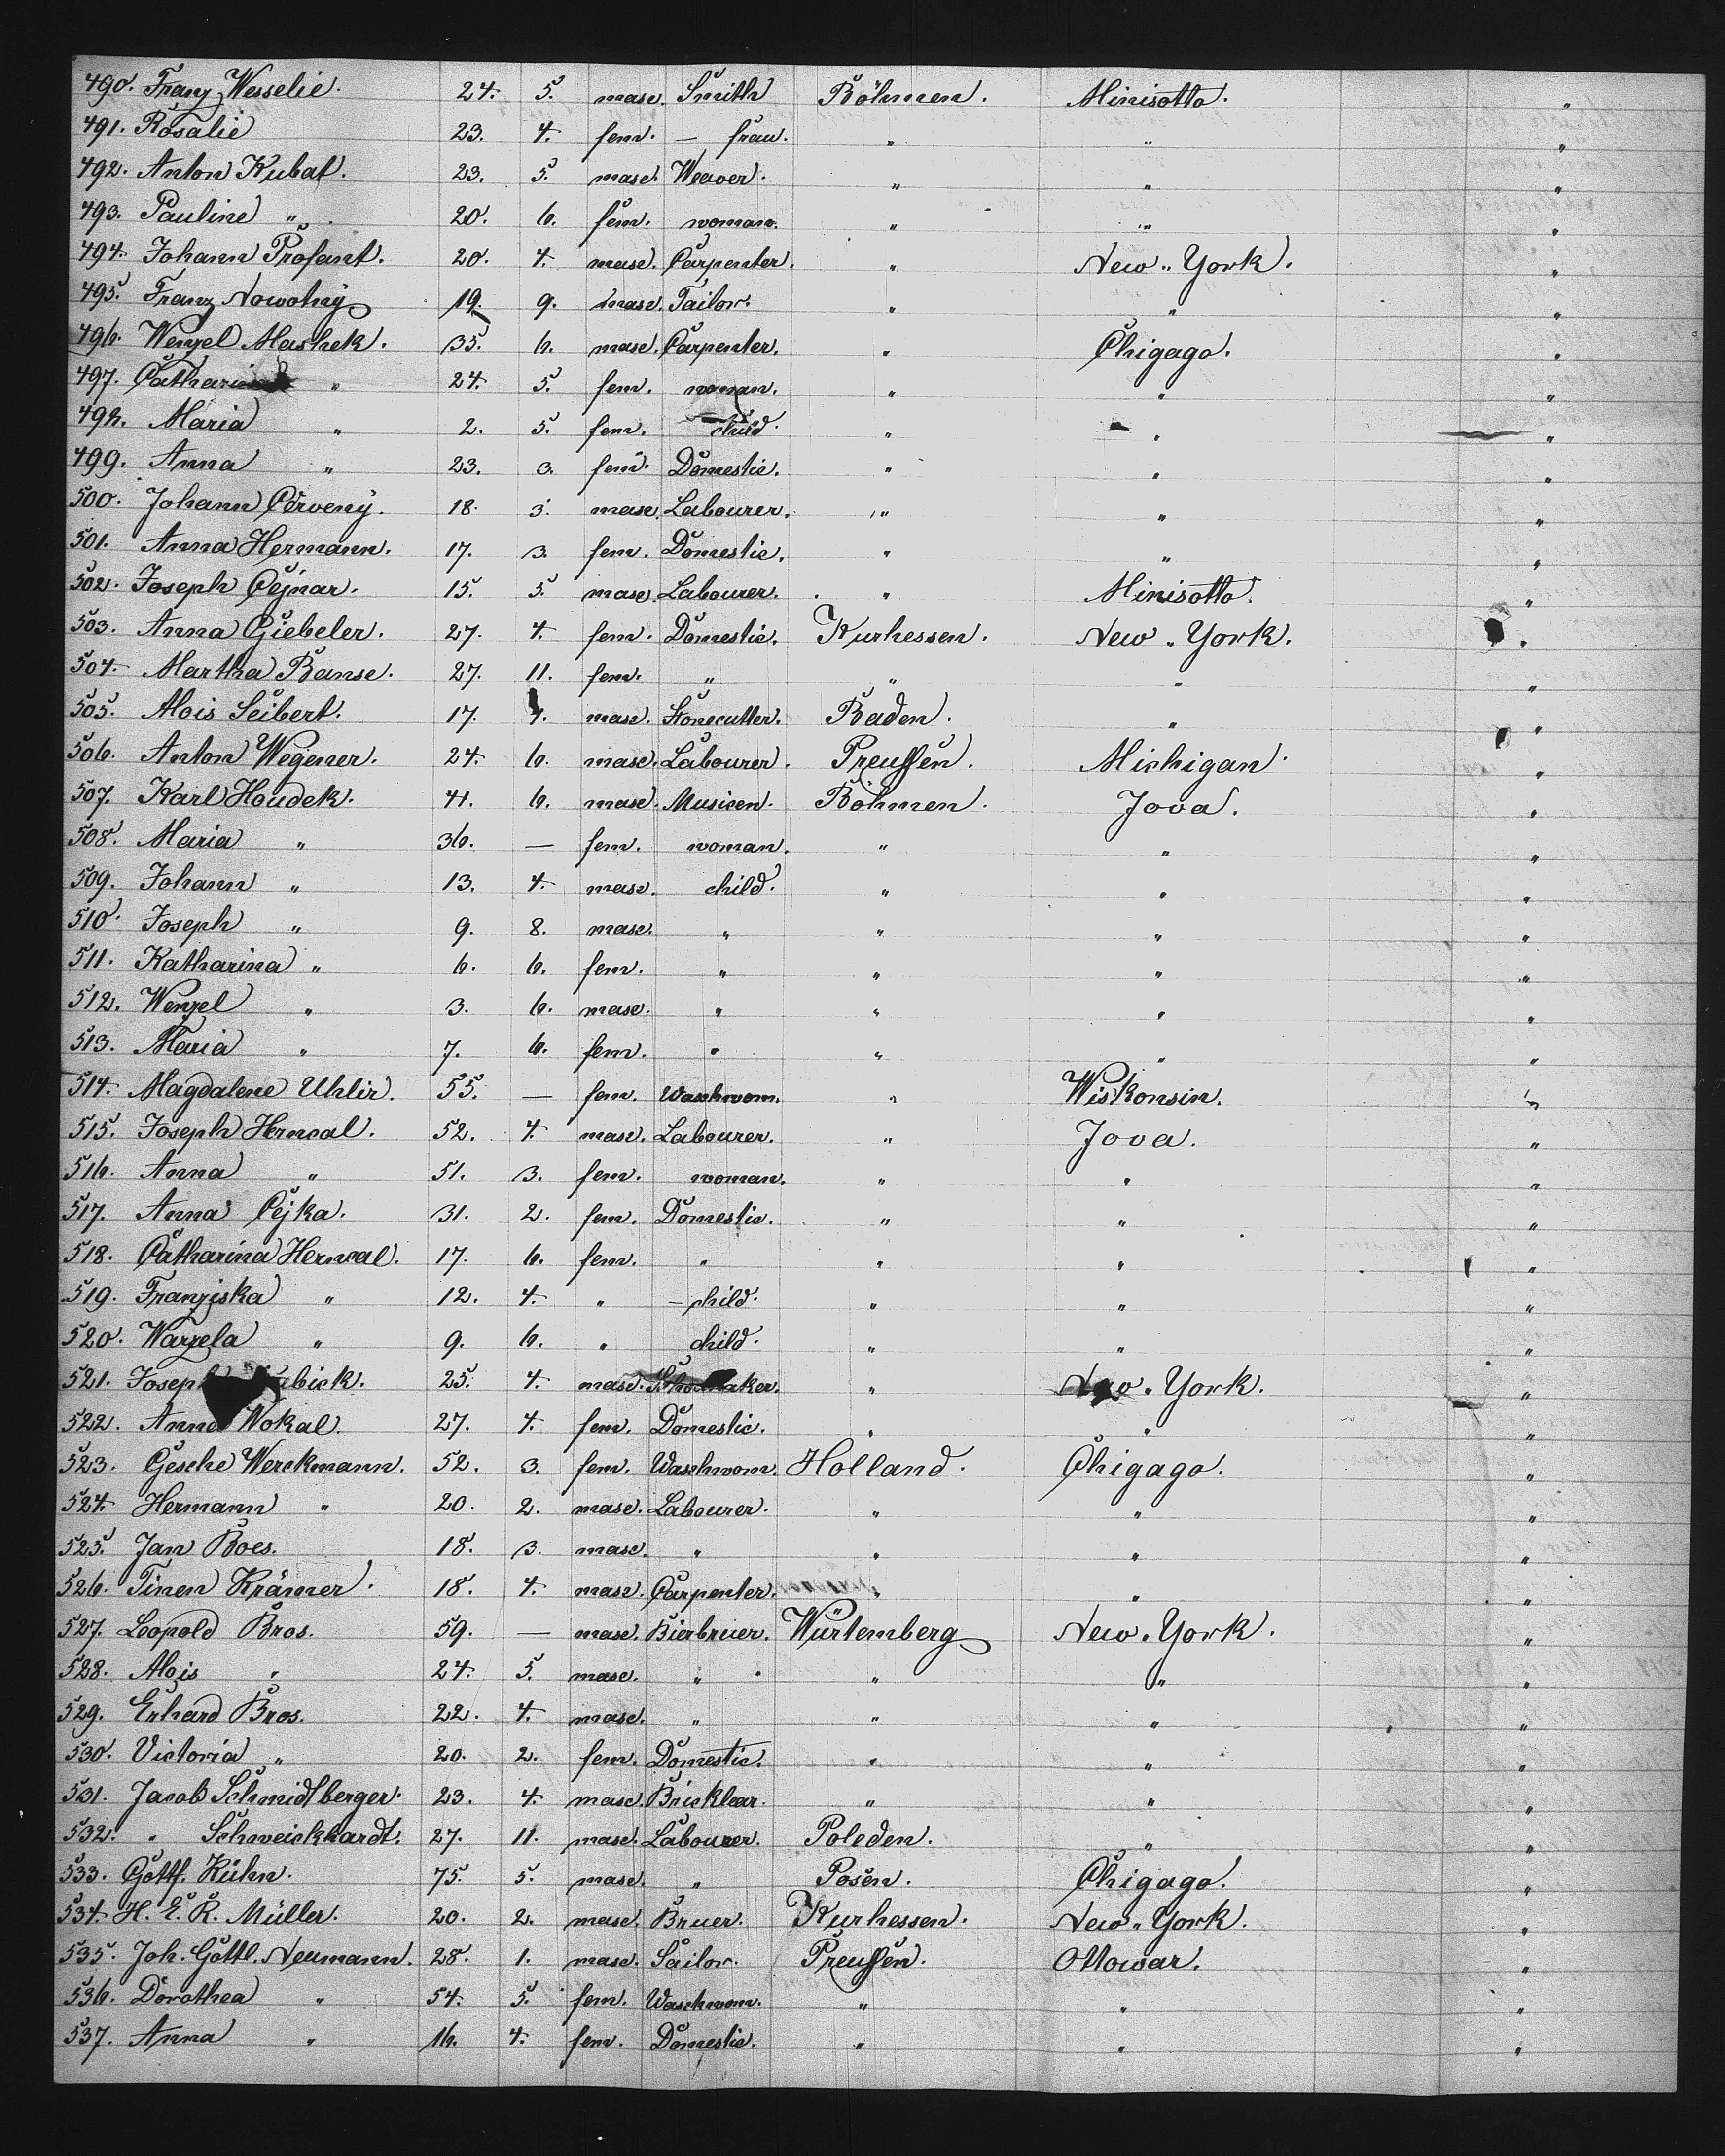 490. Franz Wesselie. 24. 5. masc. Smith Böhmen. Minisotta. "
491. Rosalie 23. 4. fem. — frau. " " "
492. Anton Kubat. 23. 5. masc. Weaver. " " "
493. Pauline " 20. 6. fem. woman. " " "
494. Johann Profant. 20. 4. masc. Carpenter. " New-York. "
495. Franz Nowotny 19. 9. masc. Tailor. " " "
496. Wenzel Mashek. 35. 6. masc. Carpenter. " Chigago. "
497. " 24. 5. fem. woman. " " "
498. Maria " 2. 5. fem. child. " " "
499. Anna " 23. 3. fem. Domestic. " " "
500. Johann Cerveny. 18. 3. masc. Labourer. " " "
501. Anna Hermann. 17. 3. fem. Domestic. " " "
502. Joseph Cejnar. 15. 5. masc. Labourer. " Minisotta. "
503. Anna Giebeler. 27. 4. fem. Domestic. Kurhessen. New-York. "
504. Martha Banse. 27. 11. fem. " " " "
505. Alois Seibert. 17. masc. Stonecutter. Baden. " "
506. Anton Wegener. 24. 6. masc. Labourer. Preußen. Michigan. "
507. Karl Houdek. 41. 6. masc. Musicen. Böhmen. Jova. "
508. Maria " 36. — fem. woman. " " "
509. Johann " 13. 4. masc. child. " " "
510. Joseph " 9. 8. masc. " " " "
511. Katharina " 6. 6. fem. " " " "
512. Wenzel " 3. 6. masc. " " " "
513. Maria " 7. 6. fem. " " " "
514. Magdalene Uhlir. 55. — fem. Waschwom. " Wiskonsin. "
515. Joseph Herncal. 52. 4. masc. Labourer. " Jova. "
516. Anna " 51. 3. fem. woman. " " "
517. Anna Cejka. 31. 2. fem. Domestic. " " "
518. Catharina Herncal. 17. 6. fem. " " " "
519. Franziska " 12. 4. " — child. " " "
520. Warzela " 9. 6. " child. " " "
521. Joseph 25. 4. masc. Shoemaker. " New-York. "
522. Anna Wokal. 27. 4. fem. Domestic. " " "
523. Gesche Werckmann. 52. 3. fem. Waschwom. Holland. Chigago. "
524. Hermann " 20. 2. masc. Labourer. " " "
525. Jan Boes. 18. 3. masc. " " " "
526. Tinen Krämer. 18. 4. masc. Carpenter. " " "
527. Leopold Bros. 59. — masc. Bierbruer. Würtemberg New-York. "
528. Alois " 24. 5. masc. " " " "
529. Erhard Bros. 22. 4. masc. " " " "
530. Victoria " 20. 2. fem. Domestic. " " "
531. Jacob Schmidtberger. 23. 4. masc. Bricklear. " " "
532. " Schweickhardt. 27. 11. masc. Labourer. Poleden. " "
533. Gottf. Kühn. 75. 5. masc. " Posen. Chigago. "
534. H. E. R. Müller. 20. 2. masc. Bruer. Kurhessen. New-York. "
535. Joh. Gottl. Neumann. 28. 1. masc. Sailor. Preußen. Ottowar. "
536. Dorothea " 54. 5. fem. Waschwom. " " "
537. Anna " 16. 4. fem. Domestic. " " "